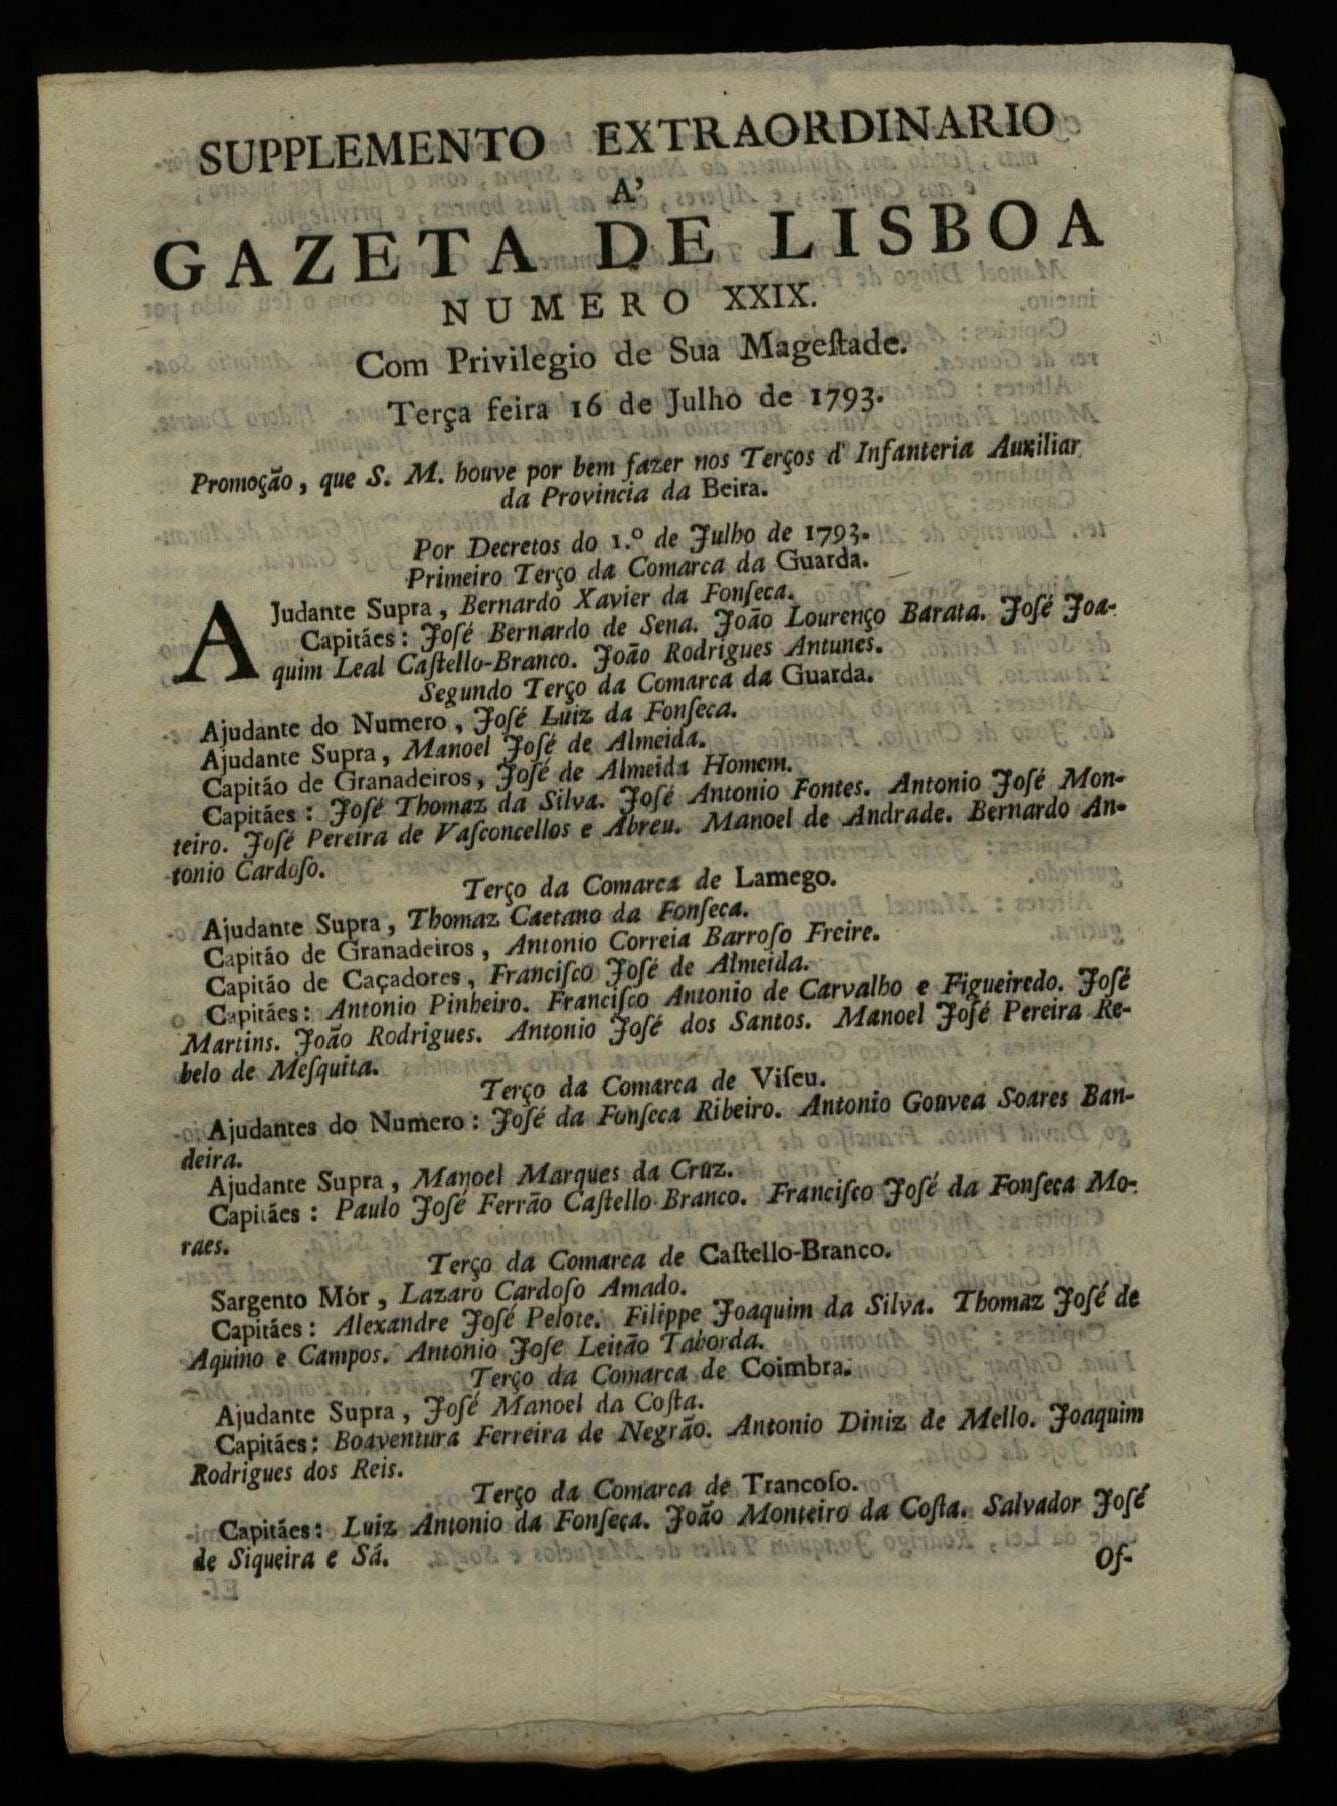 SUPPLEMENTO EXTRAORDINARIO
A'
GAZETA DE LISBOA
NUMERO XXIX.
Com Privilegio de Sua Mageſtade.
Terça feira 16 de Julho de 1793.
Promoção, que S. M. houve por bem fazer nos Terços d' Infanteria Auxiliar
da Provincia da Beira.
Por Decretos do 1.º de Julho de 1793.
Primeiro Terço da Comarca da Guarda.
AJudante Supra, Bernardo Xavier da Fonſeca.
Capitães: Joſé Bernardo de Sena. João Lourenço Barata. Joſé Joa-
quim Leal Caſtello-Branco. João Rodrigues Antunes.
Segundo Terço da Comarca da Guarda.
Ajudante do Numero, Joſé Luiz da Fonſeca.
Ajudante Supra, Manoel Joſé de Almeida.
Capitão de Granadeiros, Joſé de Almeida Homem.
Capitães: Joſé Thomaz da Silva. Joſé Antonio Fontes. Antonio Joſé Mon-
teiro. Joſé Pereira de Vaſconcellos e Abreu. Manoel de Andrade. Bernardo An-
tonio Cardoſo.
Terço da Comarca de Lamego.
Ajudante Supra, Thomaz Caetano da Fonſeca.
Capitão de Granadeiros, Antonio Correia Barroſo Freire.
Capitão de Caçadores, Franciſco Joſé de Almeida.
Capitães: Antonio Pinheiro. Franciſco Antonio de Carvalho e Figueiredo. Joſé
Martins. João Rodrigues. Antonio Joſé dos Santos. Manoel Joſé Pereira Re-
belo de Meſquita.
Terço da Comarca de Viſeu.
Ajudantes do Numero: Joſé da Fonſeca Ribeiro. Antonio Gouvea Soares Ban-
deira.
Ajudante Supra, Manoel Marques da Cruz.
Capitães: Paulo Joſé Ferrão Caſtello-Branco. Franciſco Joſé da Fonſeca Mo-
raes.
Terço da Comarca de Caſtello-Branco.
Sargento Mór, Lazaro Cardoſo Amado.
Capitães: Alexandre Joſé Pelote. Filippe Joaquim da Silva. Thomaz Joſé de
Aquino e Campos. Antonio Joſe Leitão Taborda.
Terço da Comarca de Coimbra.
Ajudante Supra, Joſé Manoel da Coſta.
Capitães: Boaventura Ferreira de Negrão. Antonio Diniz de Mello. Joaquim
Rodrigues dos Reis.
Terço da Comarca de Trancoſo.
Capitães: Luiz Antonio da Fonſeca. João Monteiro da Coſta. Salvador Joſé
de Siqueira e Sá.
Of-